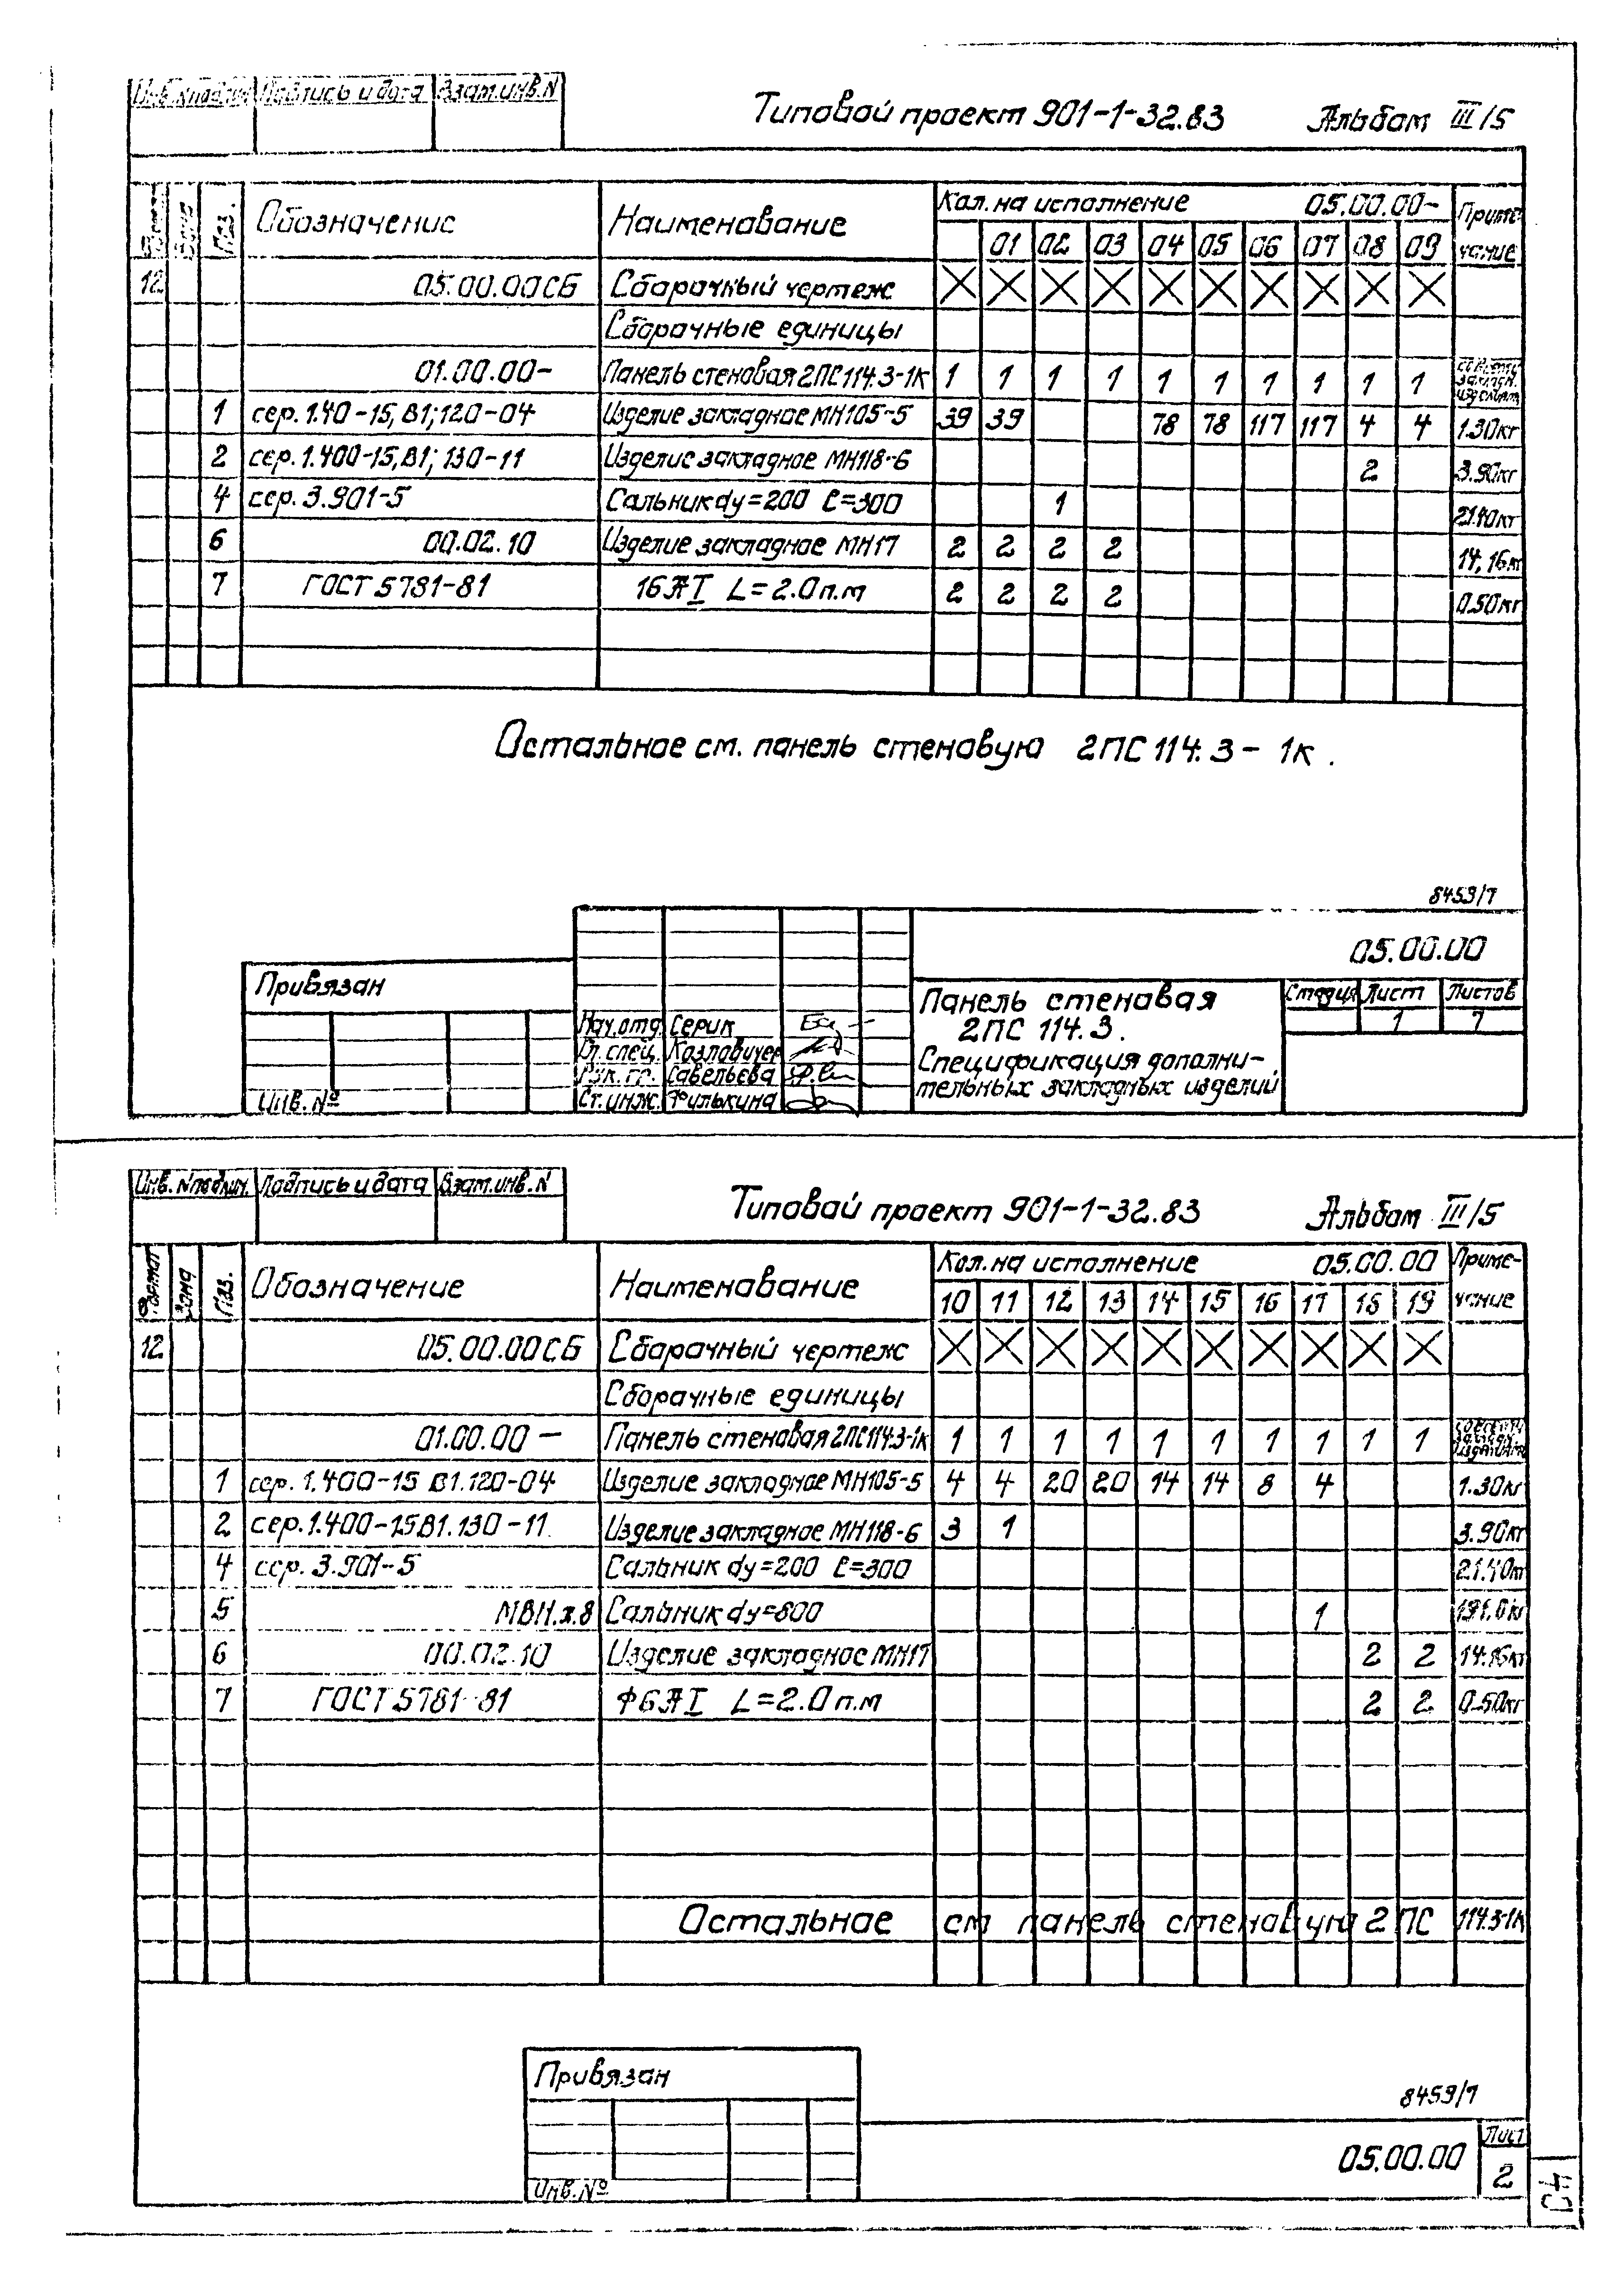 Инв. № подл. Подпись и дата Взам.инв.N
Типовой проект 901-1-32.83 Альбом III/5
Поз. Обозначение Наименование Кол. на исполнение 05.00.00- Приме-
01 02 03 04 05 06 07 08 09 чание
12 05.00.00СБ Сборочный чертеж
Сборочные единицы
01.00.00- Панель стеновая 2ПС114.3-1К 1 1 1 1 1 1 1 1 1 1
1 сер. 1.40-15, В1; 120-04 Изделие закладное МН105-5 39 39 78 78 117 117 4 4 1.30кг
2 сер. 1.400-15, В1; 130-11 Изделие закладное МН118-6 2 3.90кг
4 сер. 3.901-5 Сальник dy=200 ℓ=300 1 21.40кг
6 00.02.10 Изделие закладное МН17 2 2 2 2 14,16кг
7 ГОСТ 5781-81 16АI L=2.0п.м 2 2 2 2 0.50кг
Остальное см. панель стеновую 2ПС 114.3-1к.
8459/7
05.00.00
Привязан
Панель стеновая Стадия Лист Листов
2ПС 114.3. 1 7
Спецификация дополни-
тельных закладных изделий
Нач.отд. Серик
Гл. спец. Козлавичер
Рук. гр. Савельева
Ст. инж. Филькина
Инв. №
Инв. № подлин. Подпись и дата Взам.инв.N
Типовой проект 901-1-32.83 Альбом III/5
Формат Зона Поз. Обозначение Наименование Кол. на исполнение 05.00.00 Приме-
10 11 12 13 14 15 16 17 18 19 чание
12 05.00.00СБ Сборочный чертеж
Сборочные единицы
01.00.00- Панель стеновая 2ПС114.3-1к 1 1 1 1 1 1 1 1 1 1
1 сер. 1.400-15 В1.120-04 Изделие закладное МН105-5 4 4 20 20 14 14 8 4 1.30кг
2 сер. 1.400-15В1.130-11 Изделие закладное МН118-6 3 1 3.90кг
4 сер. 3.901-5 Сальник dy=200 ℓ=300 21.40кг
5 Сальник dy=800 1
6 00.02.10 Изделие закладное МН17 2 2 14.16кг
7 ГОСТ 5781-81 Ф6АI L=2.0п.м 2 2 0.50кг
Остальное см панель стеновую 2ПС 114.3-1К
Привязан
Инв. №
8459/7
05.00.00 Лист
2
40